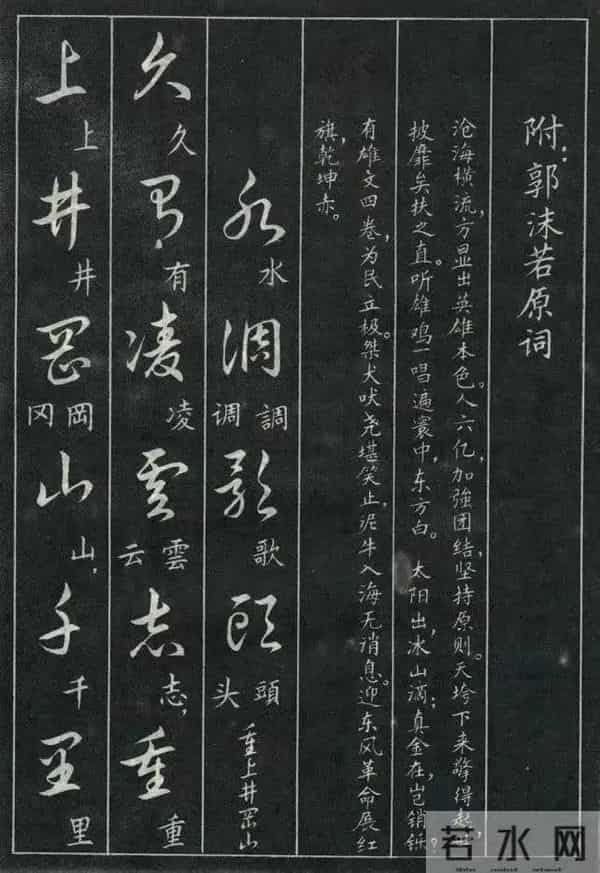 附:郭沫若原词
沧海横流,方显出英雄本色。人六亿,加強团结,坚持原则。天垮下来擎得起,世
披靡矣扶之直。听雄鸡一唱遍寰中,东方白。 太阳出,冰山滴;真金在,岂销铄。
有雄文四卷,为民立极。桀犬吠尧堪笑止,泥牛入海无消息。迎东风革命展红
旗,乾坤赤。
水 水 调 調 调 歌 歌 头 頭 头 重上井冈山
久 久 有 有 凌 凌 云 雲 云 志 志, 重 重
上 上 井 井 冈 岡 冈 山 山, 千 千 里 里
若水网